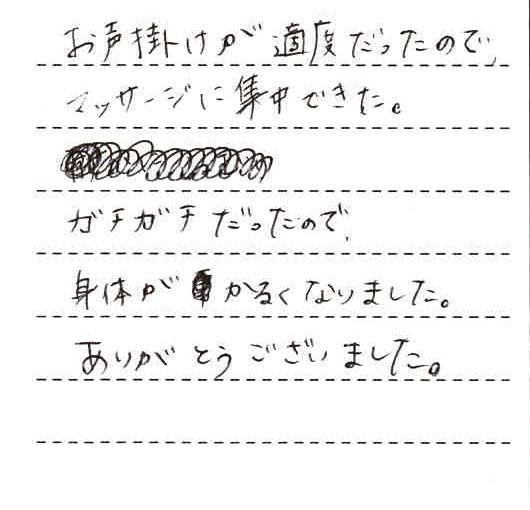 お声掛けが適度だったので、
マッサージに集中できた。
ガチガチだったので、
身体がかるくなりました。
ありがとうございました。